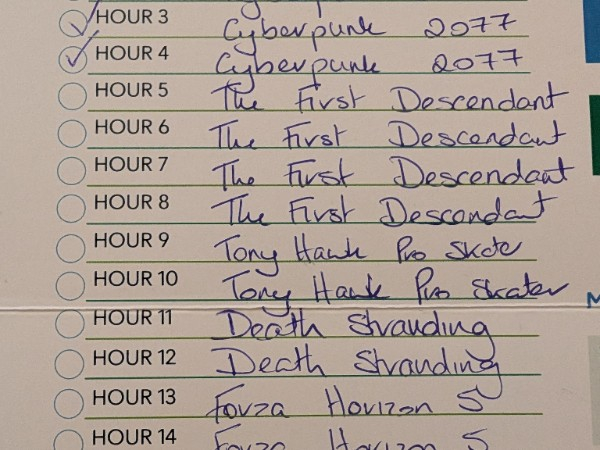 HOUR 3 Cyberpunk 2077
HOUR 4 Cyberpunk 2077
HOUR 5 The First Descendant
HOUR 6 The First Descendant
HOUR 7 The First Descendant
HOUR 8 The First Descendant
HOUR 9 Tony Hawk Pro Skate
HOUR 10 Tony Hawk Pro Skater
HOUR 11 Death Stranding
HOUR 12 Death Stranding
HOUR 13 Forza Horizon 5
HOUR 14 Forza Horizon 5